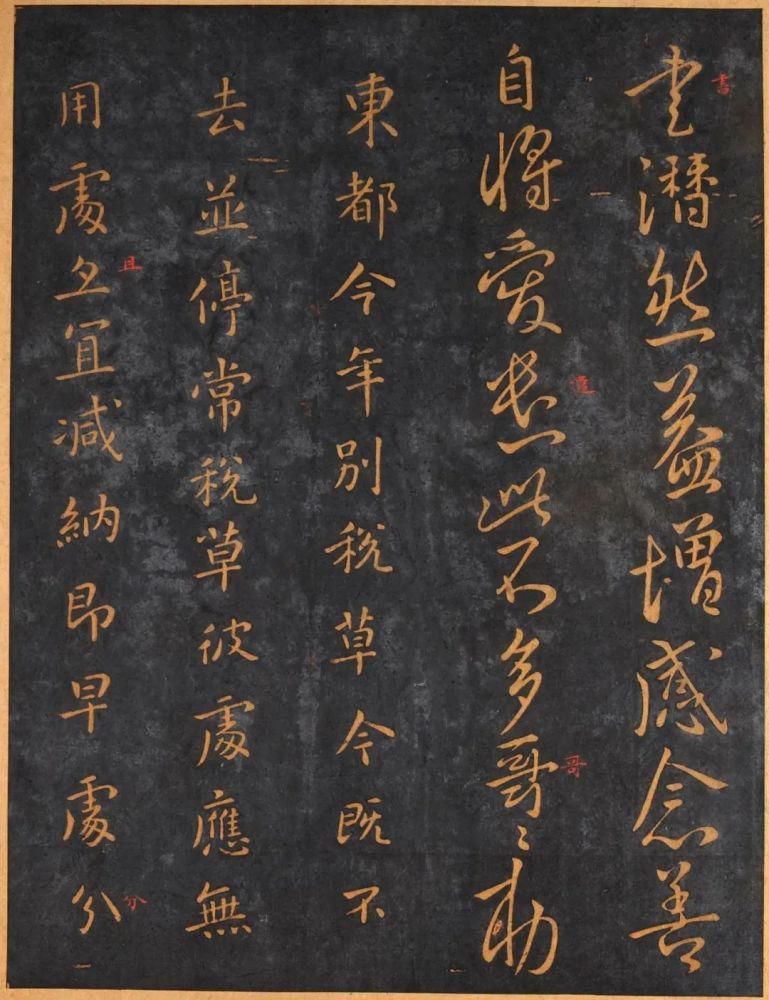 書潸然益增感念善
書
自將愛遣此不多哥〻勅
遣
哥
東都今年別稅草今既不
去並停常稅草彼處應無
用處且宜減納即早處分
且
分